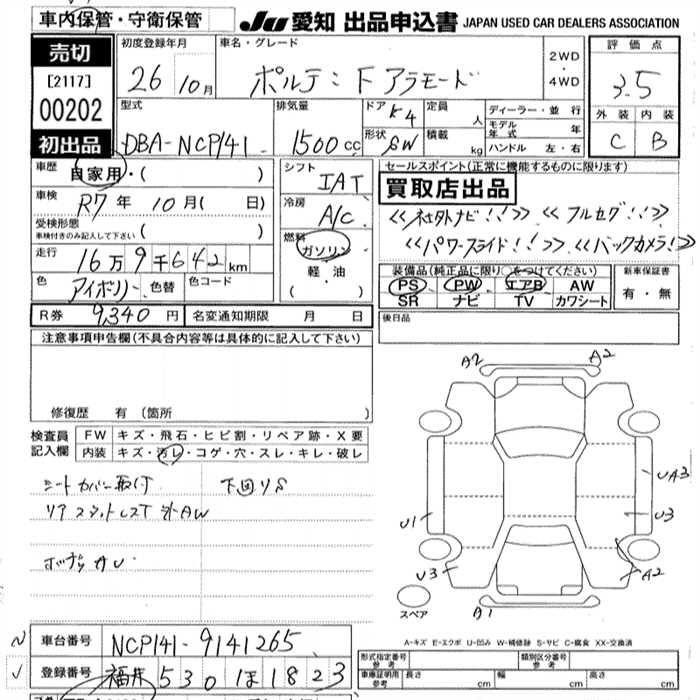 車内保管・守衛保管
JU 愛知 出品申込書 JAPAN USED CAR DEALERS ASSOCIATION
売切
[2117]
00202
初出品
初度登録年月 車名・グレード
26 10月 ポルテ: F アラモード
2WD・4WD
評価点
3.5
外装 内装
C B
型式 排気量 ドア 定員 ディーラー・並行
DBA-NCP141 1500cc K4 人 モデル年式 年
形状 5W 積載 kg ハンドル 左・右
車歴 自家用・( )
車検 R7年 10月( 日)
受検形態
車検付きのみ記入して下さい ( )
走行 16万9千642km
色 アイボリー 色替 色コード
シフト IAT
冷房 A/C
燃料 ガソリン
軽・油
( ・ )
セールスポイント(正常に機能するものに限ります)
買取店出品
<<社外ナビ!!>> <<フルセグ!!>>
<<パワースライド!!>> <<バックカメラ!>>
装備品(純正品に限り○をつけてください) 新車保証書
PS PW エアB AW 有・無
SR ナビ TV カワシート
R券 9,340円 名変通知期限 月 日
後日品
注意事項申告欄(不具合内容等は具体的に記入して下さい)
修復歴 有 (箇所 )
検査員記入欄 FW キズ・飛石・ヒビ割・リペア跡・X要
内装 キズ・汚レ・コゲ・穴・スレ・キレ・破レ
シートカバー取付 下回りS
A2 A2
UA3
U1 U3
U3 A2
スペア
A-キズ E-エクボ U-凹み W-補修跡 S-サビ C-腐食 XX-交換済
車台番号 NCP141-9141265
登録番号 福井 530 ほ 1823
形式指定番号 参考 類別区分番号 参考
車庫証明用 参考 長さ cm 幅 cm 高さ cm